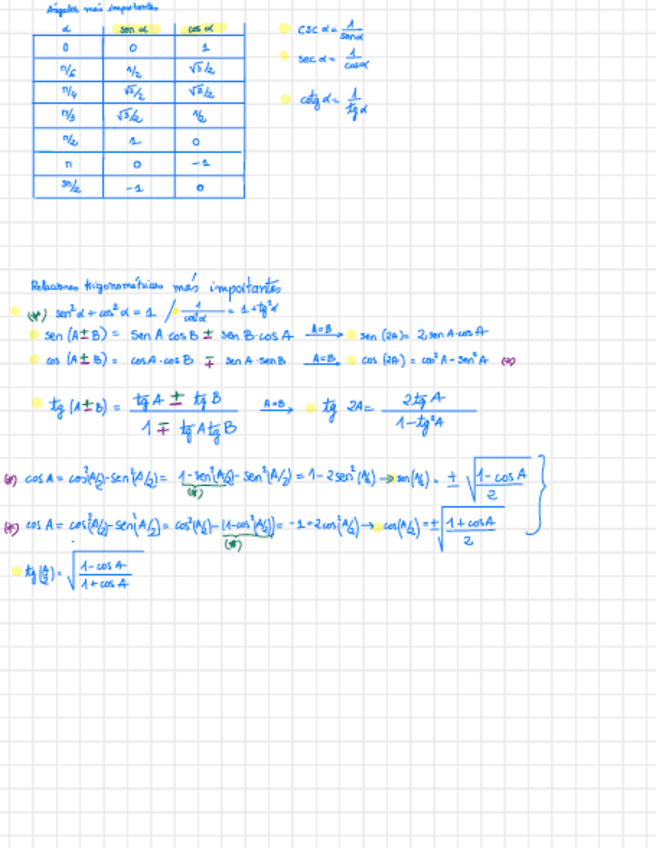 Ángulos más importantes
α sen α cos α
0 0 1
π/6 1/2 √3/2
π/4 √2/2 √2/2
π/3 √3/2 1/2
π/2 1 0
π 0 -1
3π/2 -1 0
csc α = 1/sen α
sec α = 1/cos α
cotg α = 1/tg α
Relaciones trigonométricas más importantes
(*) sen²α + cos²α = 1 / 1/cos²α = 1 + tg²α
sen (A ± B) = sen A · cos B ± sen B · cos A A=B → sen (2A) = 2 sen A · cos A
cos (A ± B) = cos A · cos B ∓ sen A · sen B A=B → cos (2A) = cos²A - sen²A (*)
tg (A ± B) = (tg A ± tg B)/(1 ∓ tg A tg B) A=B → tg 2A = 2 tg A/(1 - tg²A)
(*) cos A = cos²(A/2) - sen²(A/2) = 1 - sen²(A/2) - sen²(A/2) = 1 - 2 sen²(A/2) → sen(A/2) = ± √((1 - cos A)/2)
(*)
(*) cos A = cos²(A/2) - sen²(A/2) = cos²(A/2) - (1 - cos²(A/2)) = -1 + 2 cos²(A/2) → cos(A/2) = ± √((1 + cos A)/2)
(*)
tg(A/2) = √((1 - cos A)/(1 + cos A))